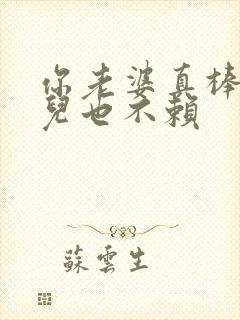 你老婆真棒
兒也不賴
蘇雲生